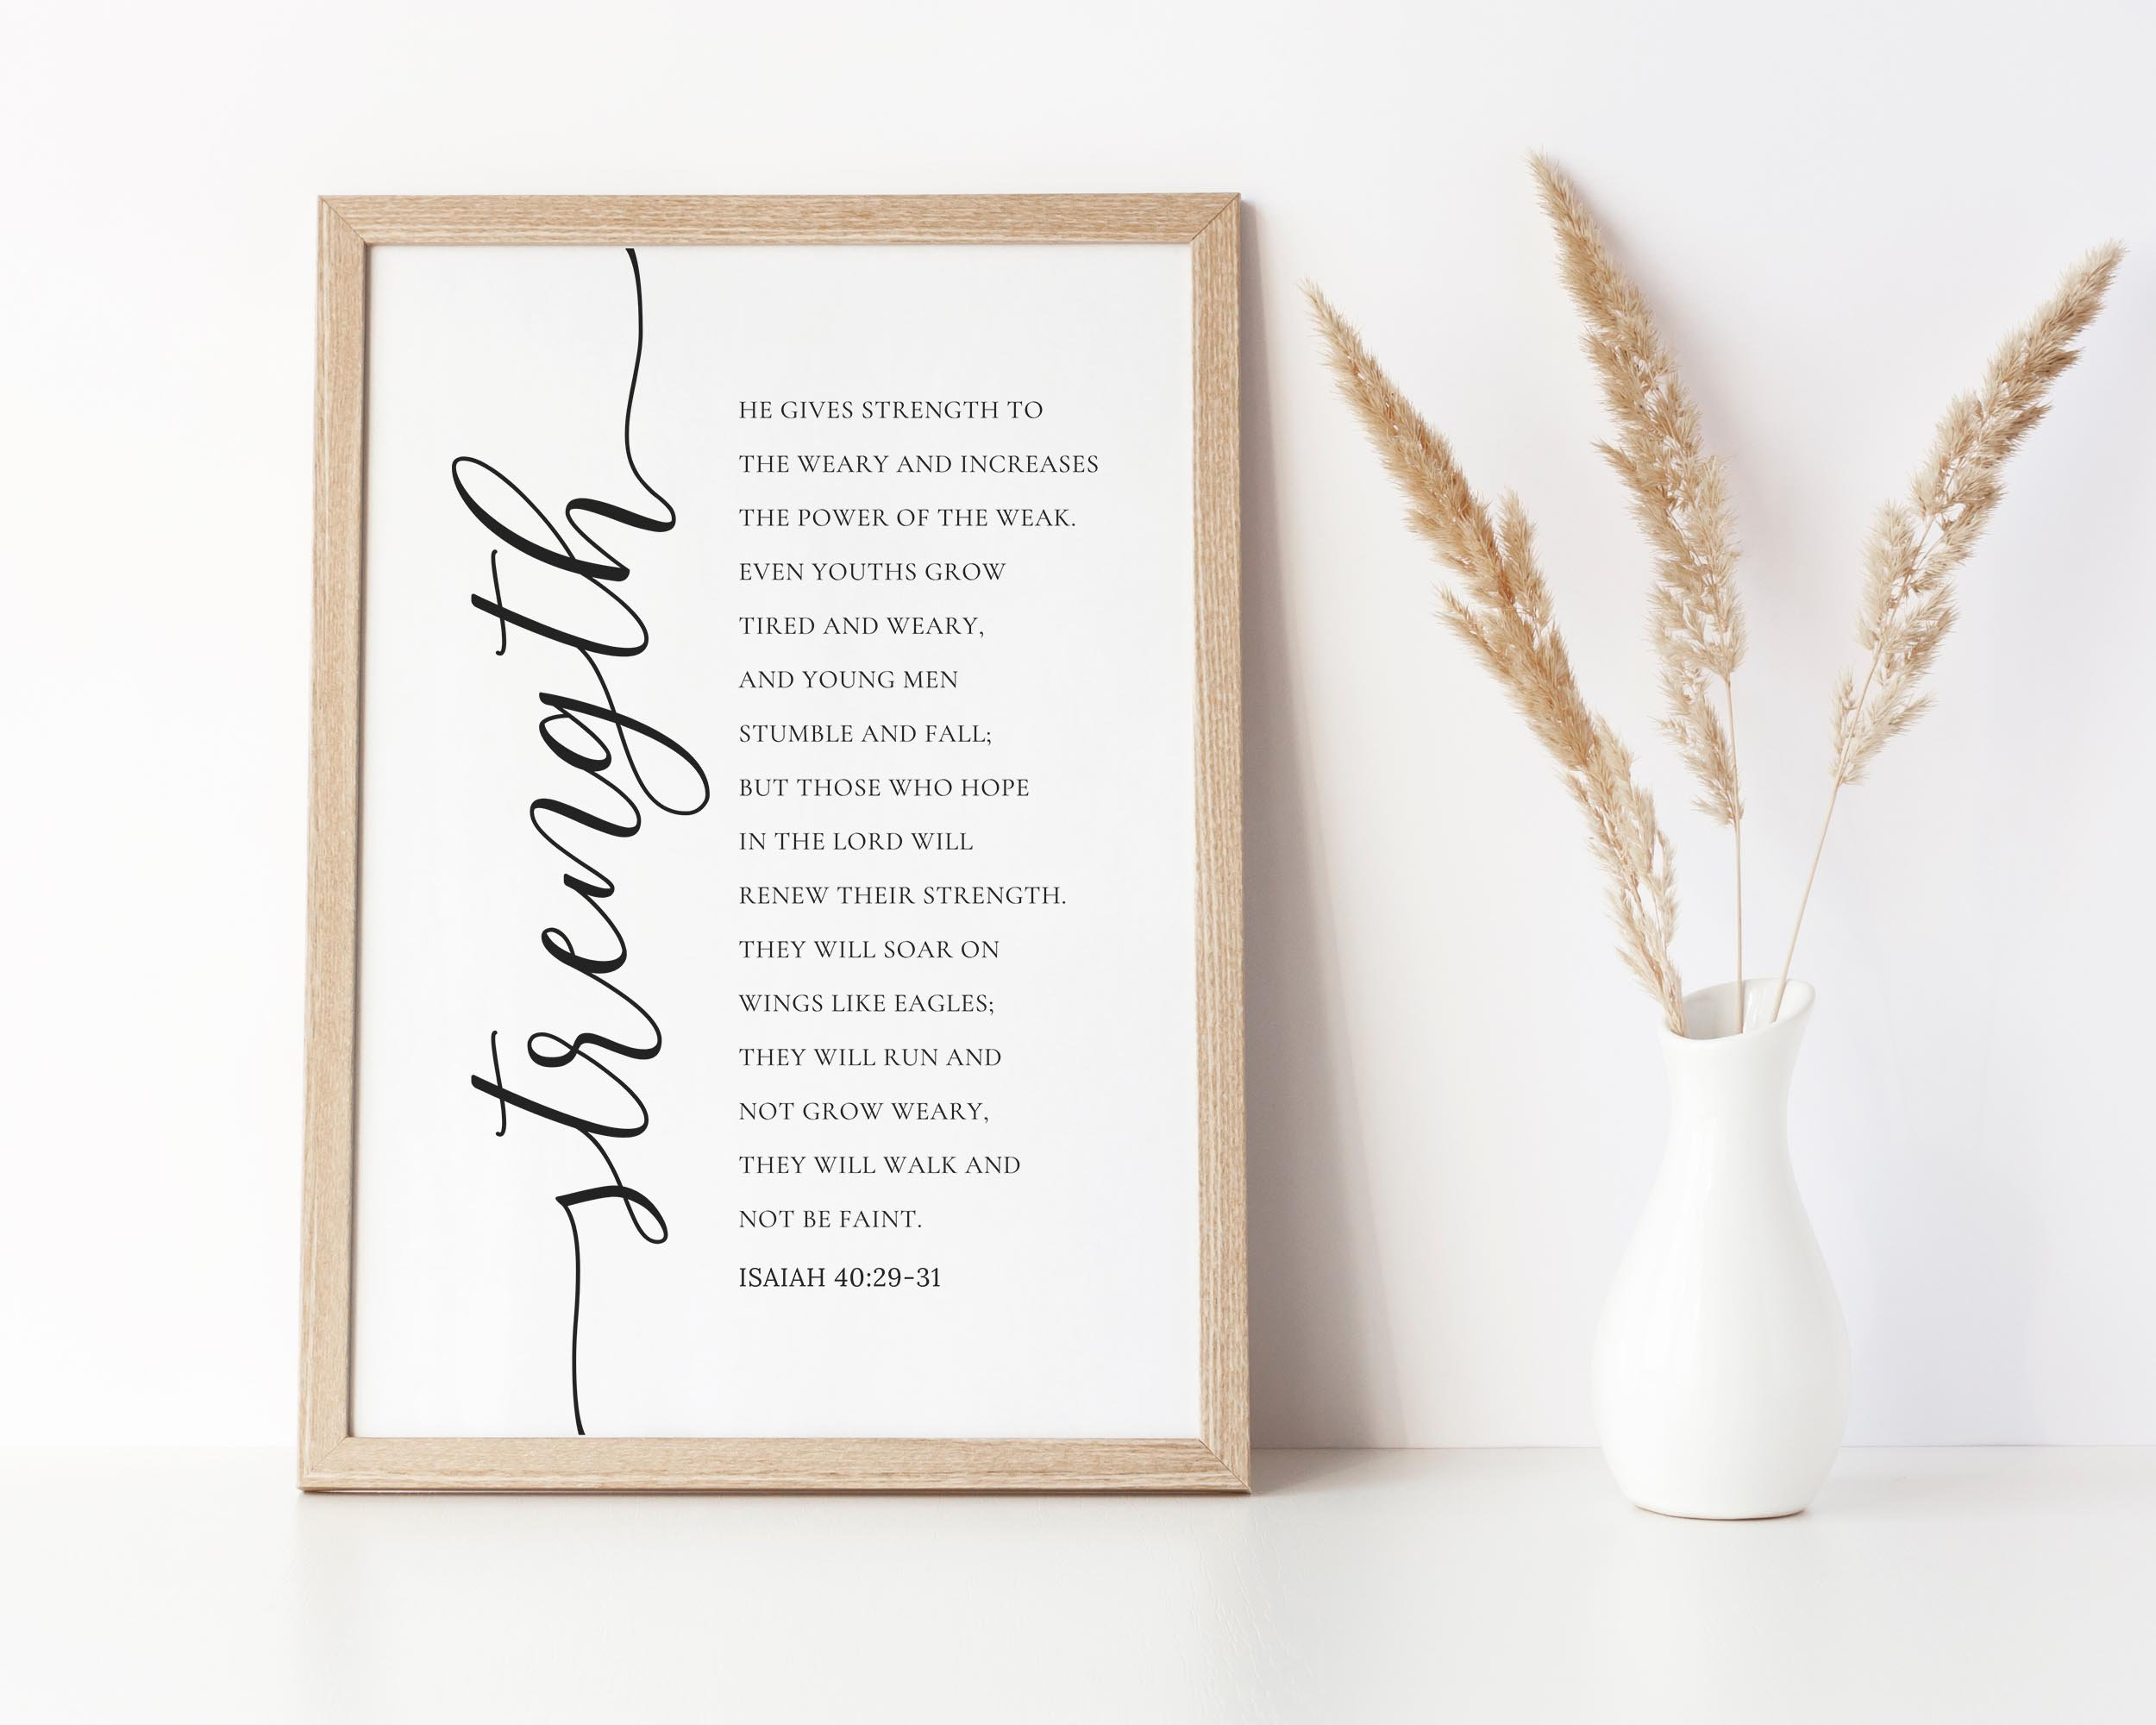 strength
HE GIVES STRENGTH TO
THE WEARY AND INCREASES
THE POWER OF THE WEAK.
EVEN YOUTHS GROW
TIRED AND WEARY,
AND YOUNG MEN
STUMBLE AND FALL;
BUT THOSE WHO HOPE
IN THE LORD WILL
RENEW THEIR STRENGTH.
THEY WILL SOAR ON
WINGS LIKE EAGLES;
THEY WILL RUN AND
NOT GROW WEARY,
THEY WILL WALK AND
NOT BE FAINT.
ISAIAH 40:29-31